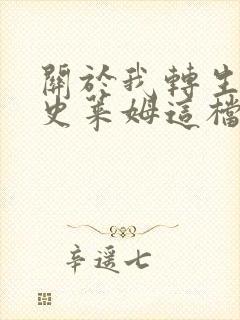 關於我轉生
史萊姆這檔
辛遥七